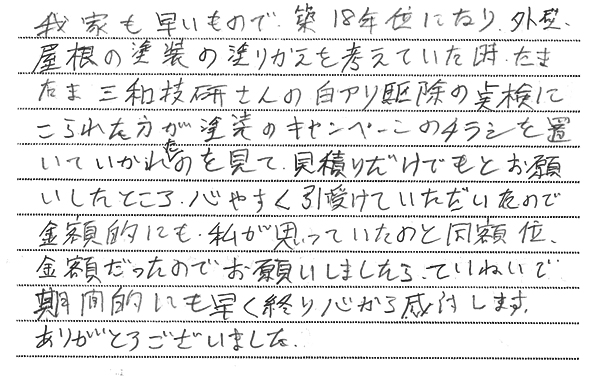 我家も早いもので、築18年位になり、外壁、
屋根の塗装の塗りかえを考えていた時、たま
たま三和技研さんの白アリ駆除の点検に
こられた方が塗装のキャンペーンのチラシを置
いていかれたのを見て、見積りだけでもとお願
いしたところ、心やすく引受けていただいたので
金額的にも、私が思っていたのと同額位、
金額だったのでお願いしましたら、ていねいで
期間的にも早く終り心から感謝します。
ありがとうございました。